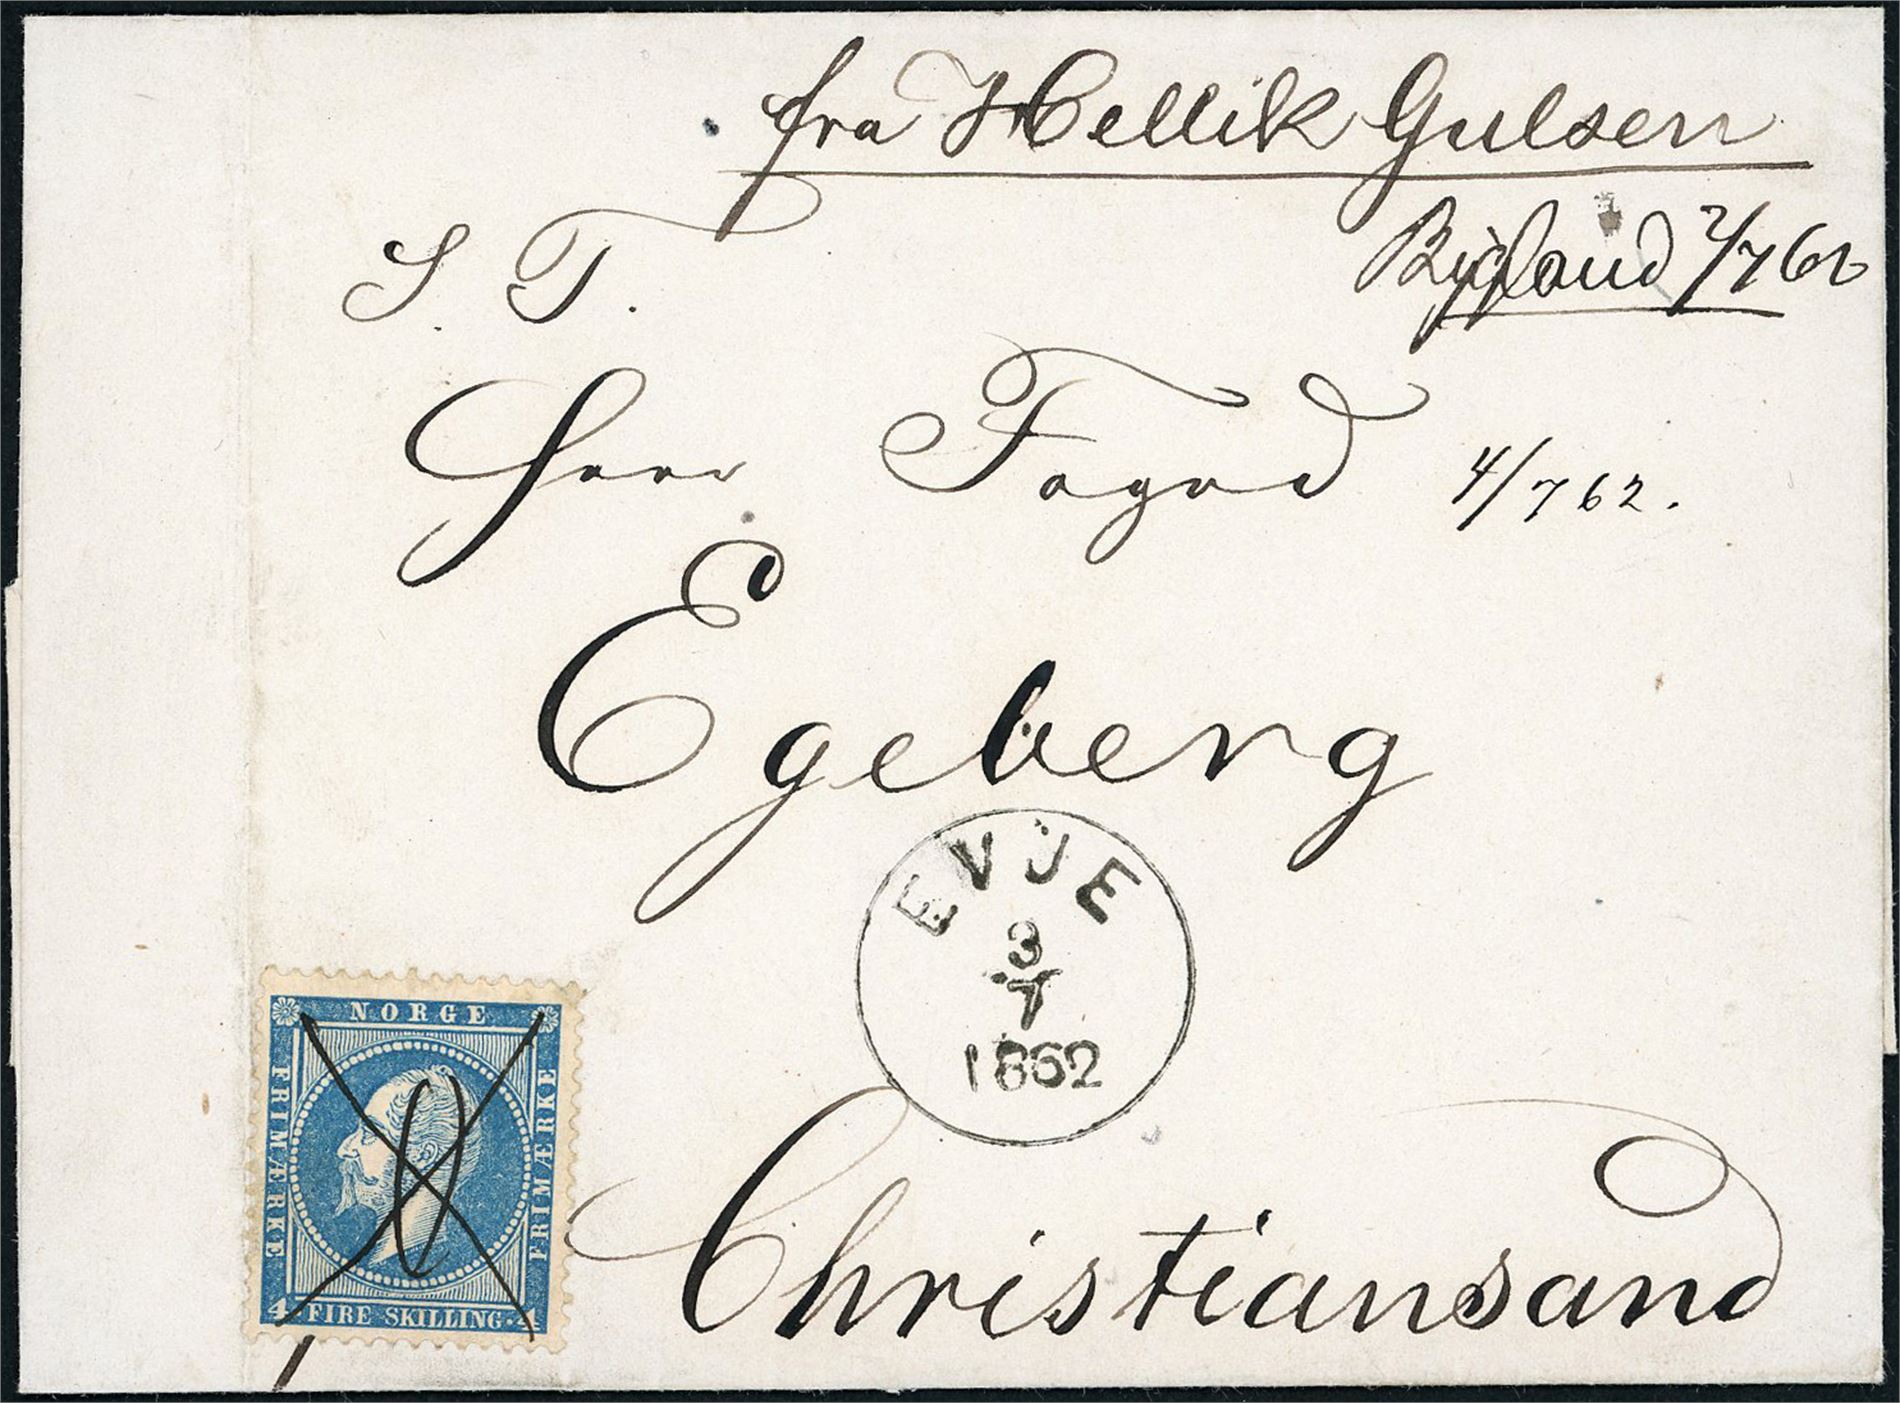 fra Hellik Gulsen
Bygland 2/7 62
S. T.
Herr Foged 4/7 62.
Egeberg
EVJE
3/7
1862
NORGE
FRIMÆRKE
FRIMÆRKE
4 FIRE SKILLING 4
Christiansand